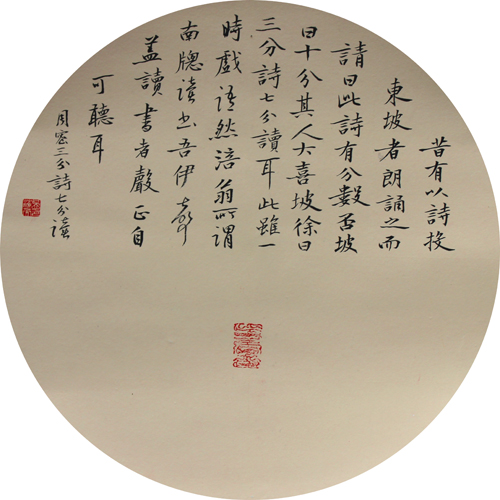 昔有以詩投
東坡者朗誦之而
請曰此詩有分數否坡
曰十分其人大喜坡徐曰
三分詩七分讀耳此雖一
時戲語然涪翁所謂
南牕讀書吾伊聲
蓋讀書者聲正自
可聽耳
周密三分詩七分讀